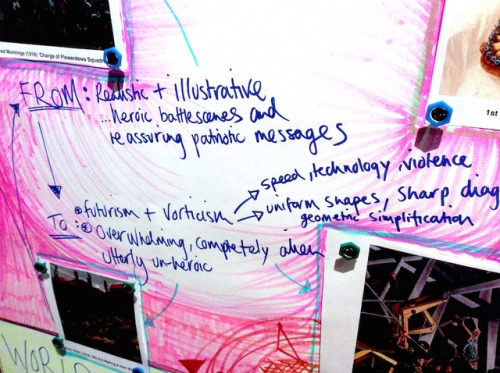 Munnings (1918) 'Charge of Flowerdews Squad
1st
FROM: Realistic + illustrative
...heroic battlescenes and
reassuring patriotic messages
TO: futurism + Vorticism
speed, technology, violence
uniform shapes, sharp diag
geometric simplification
Overwhelming, completely alien
utterly un-heroic
WORLD